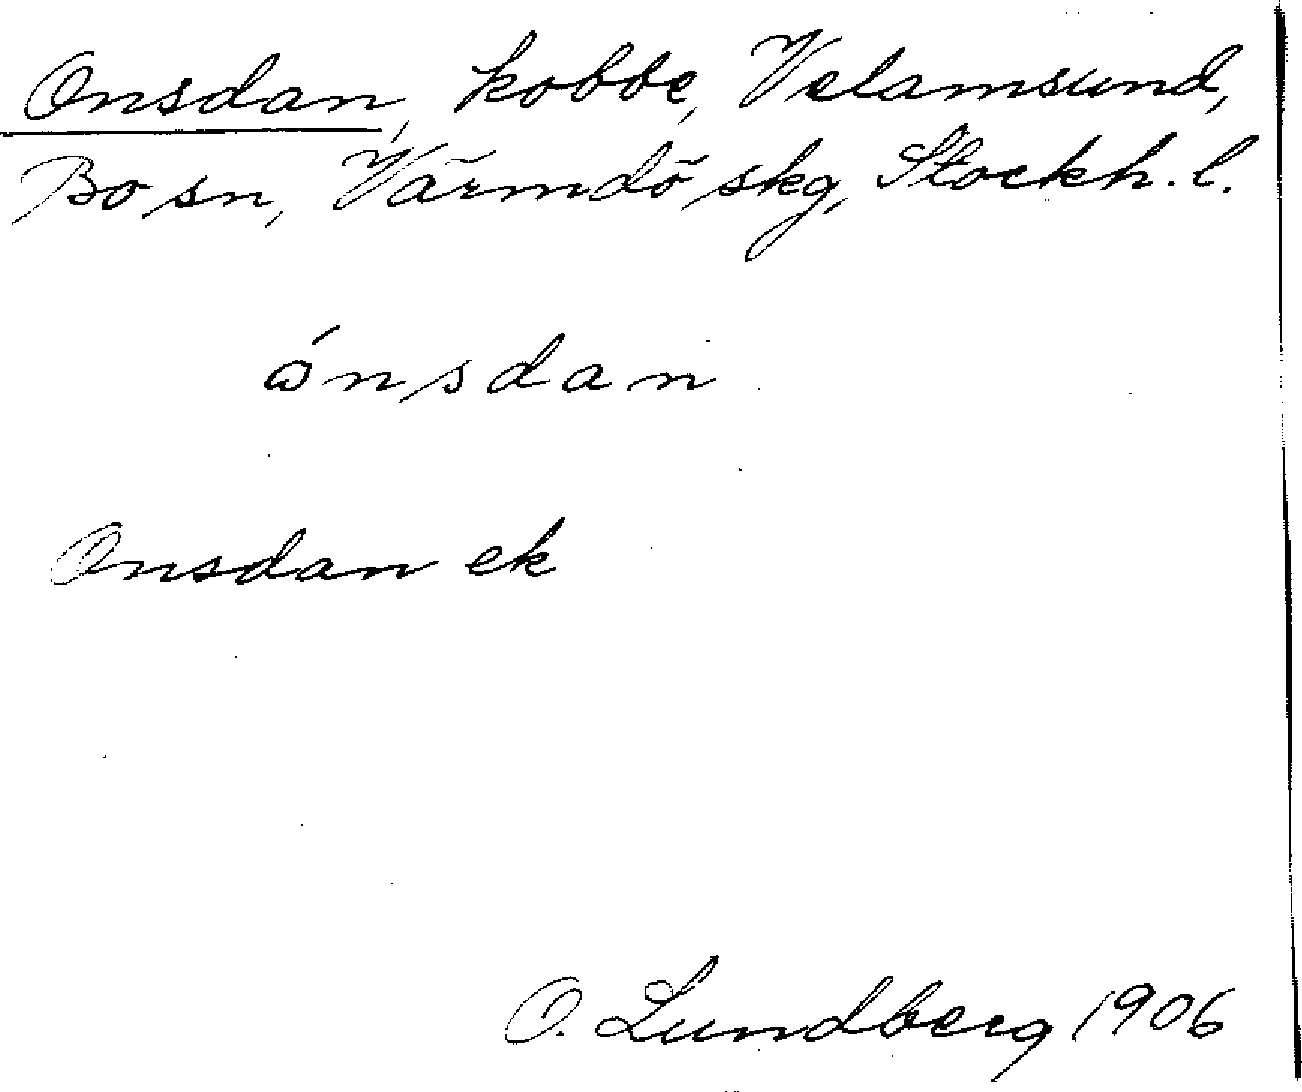 Onsdan, kobbe, Velamsund,
Bo sn, Värmdö skg, Stockh. l.
ώnsdan
Onsdan ek
O. Lundberg 1906